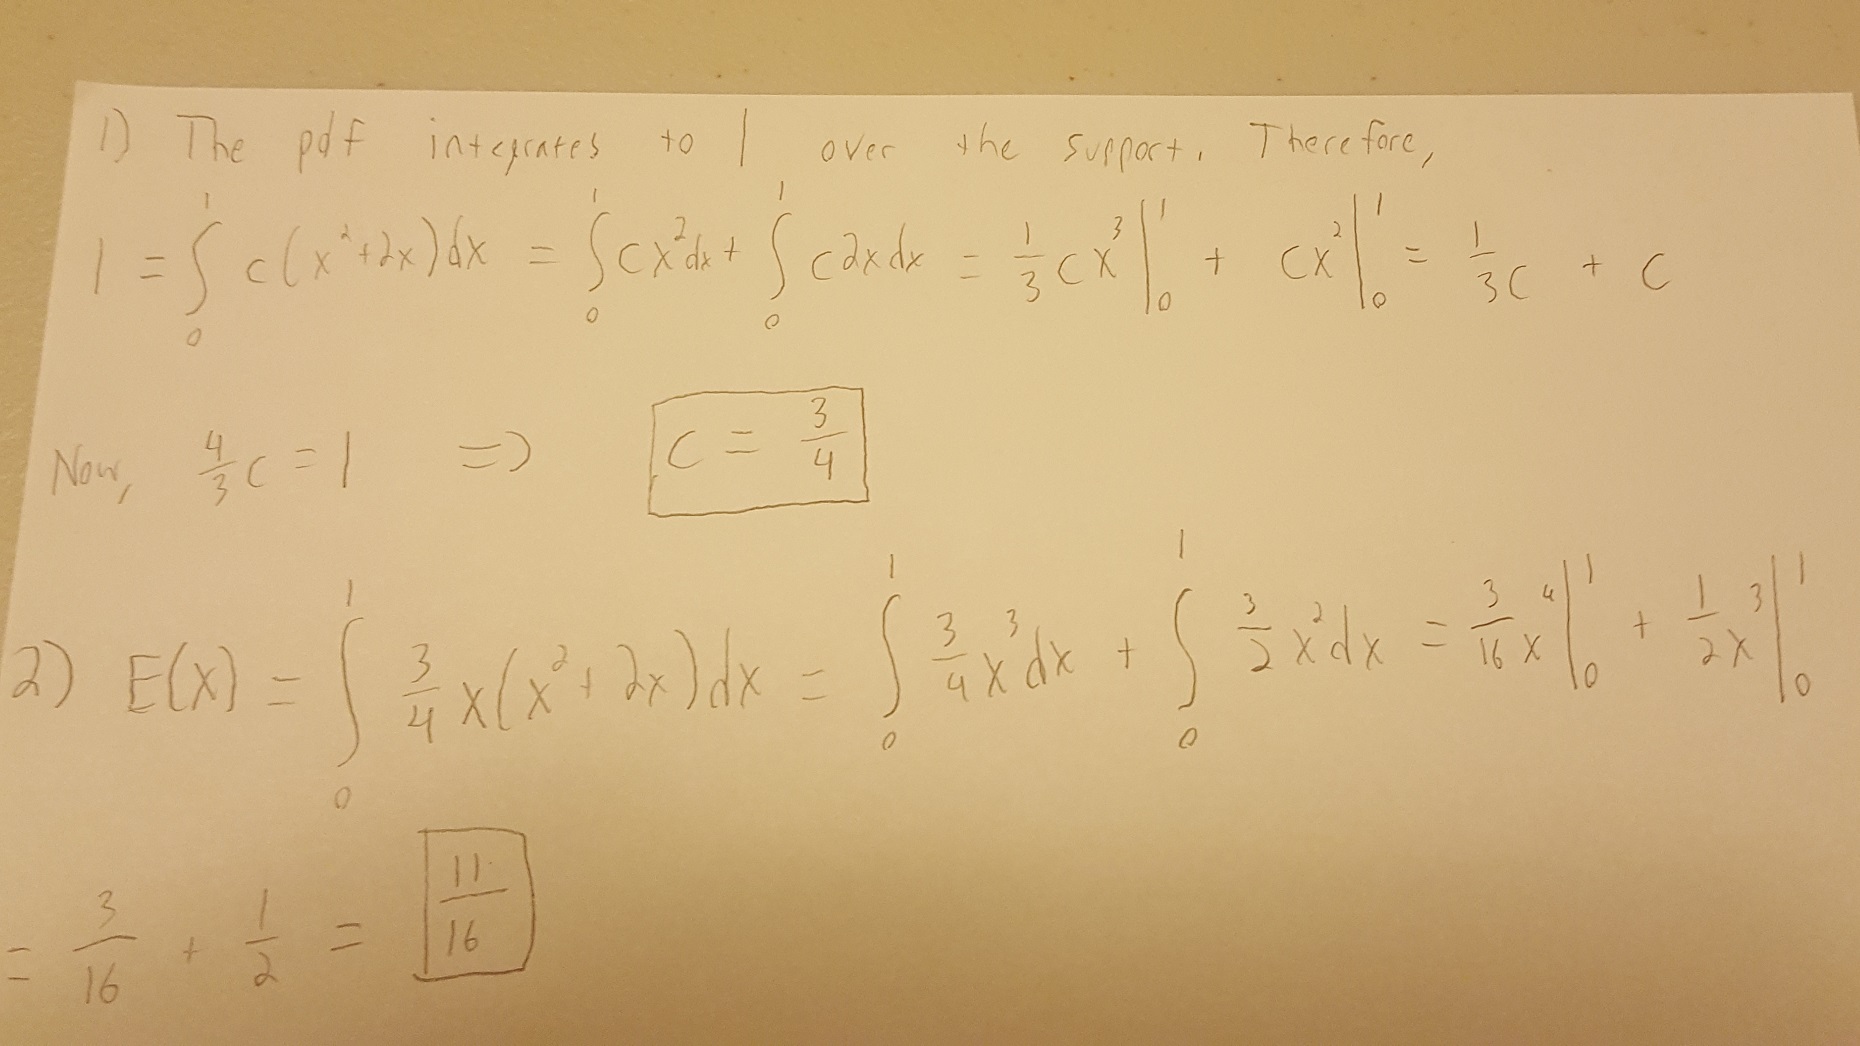 1) The pdf integrates to 1 over the support. Therefore,
1 = ∫₀¹ c(x²+2x)dx = ∫₀¹ cx²dx + ∫₀¹ c2xdx = 1/3 cx³|₀¹ + cx²|₀¹ = 1/3 c + c
Now, 4/3 c = 1 => c = 3/4
2) E(x) = ∫₀¹ 3/4 x(x²+2x)dx = ∫₀¹ 3/4 x³dx + ∫₀¹ 3/2 x²dx = 3/16 x⁴|₀¹ + 1/2 x³|₀¹
= 3/16 + 1/2 = 11/16